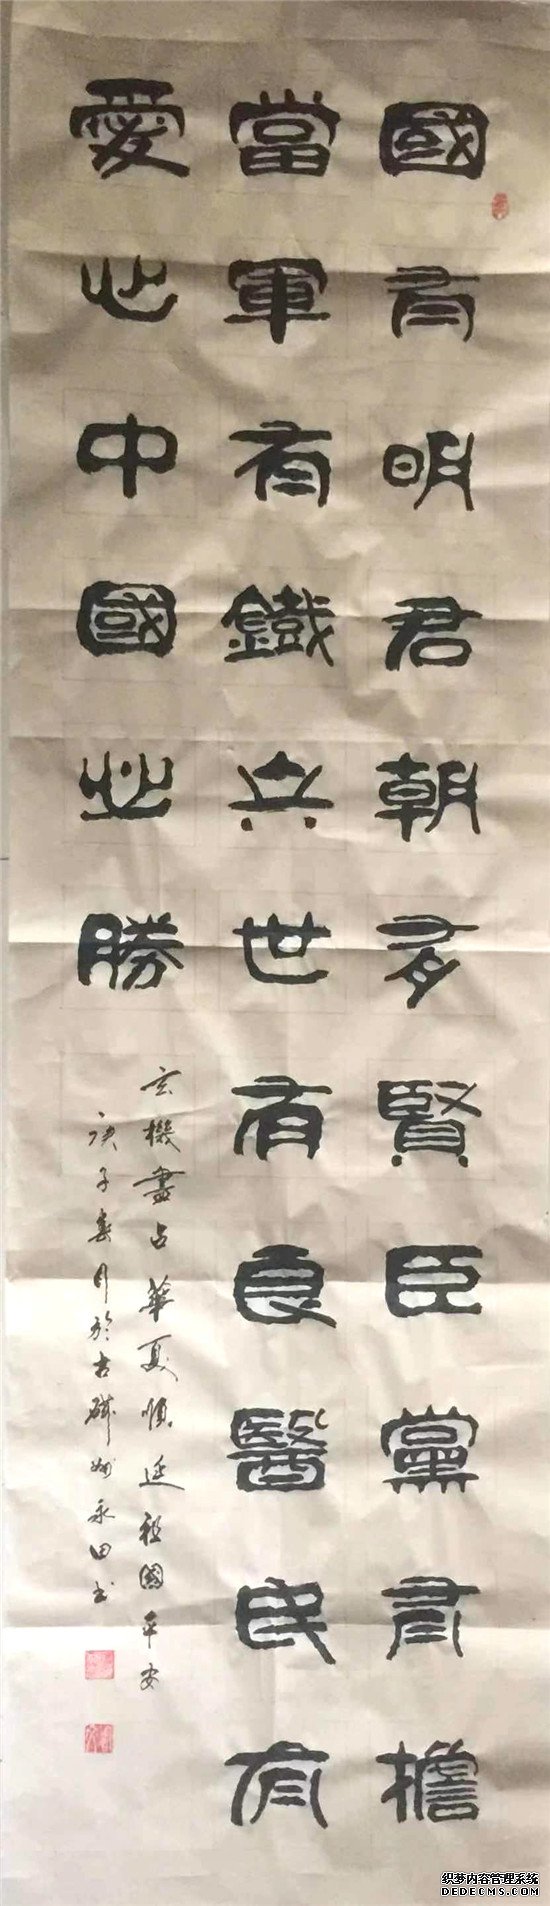 國有明君朝有賢臣黨有擔
當軍有鐵兵世有良醫民有
愛心中國必勝
玄機盡占華夏順延祖國平安
庚子春月於古磁州永田书
织梦内容管理系统
DEDECMS.COM